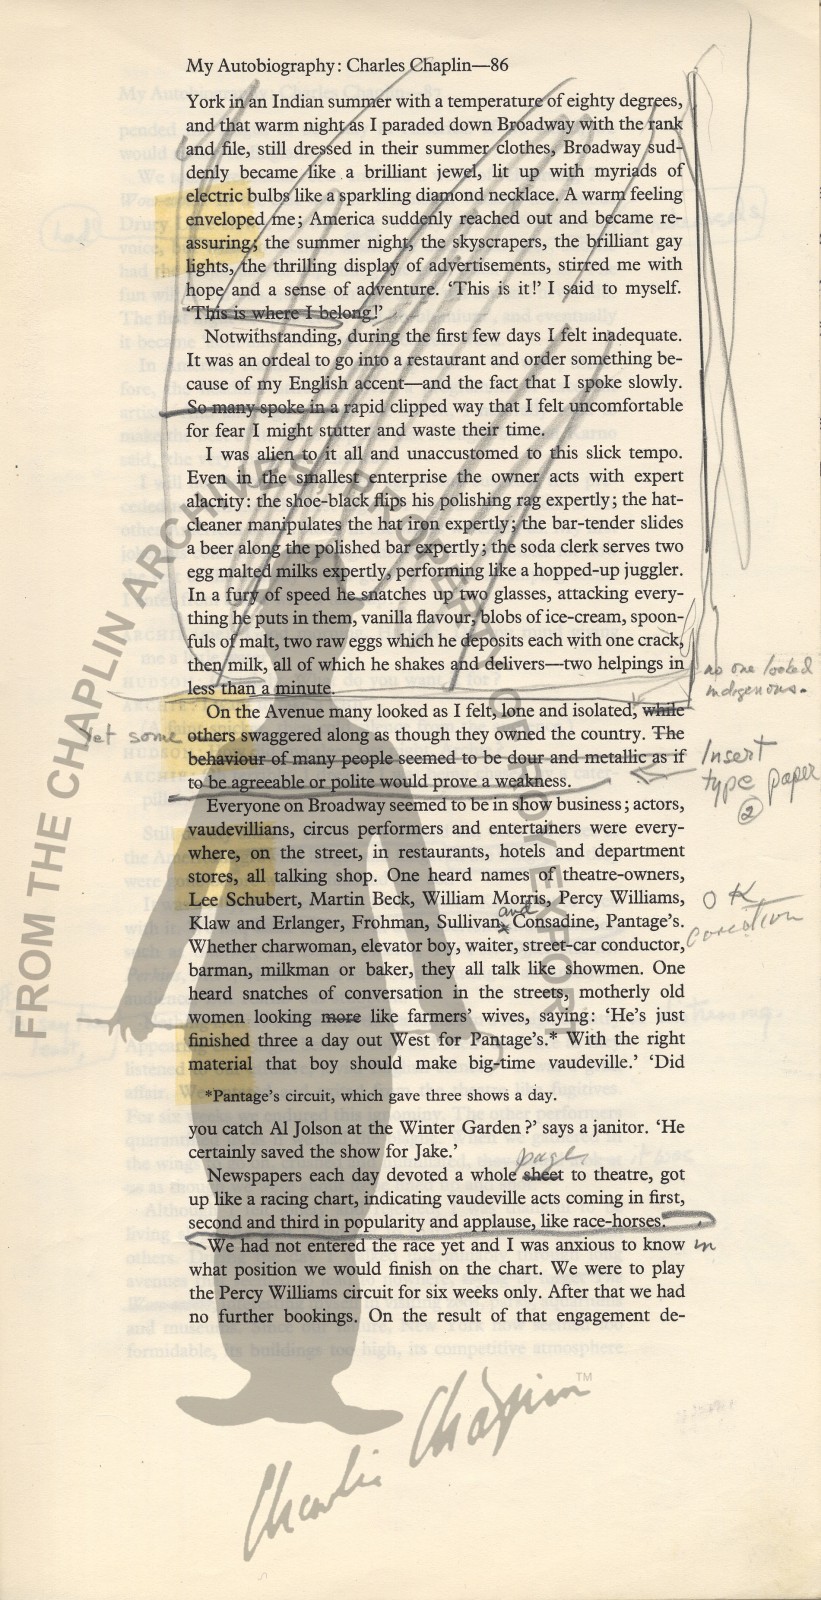 My Autobiography: Charles Chaplin—86
York in an Indian summer with a temperature of eighty degrees,
and that warm night as I paraded down Broadway with the rank
and file, still dressed in their summer clothes, Broadway sud-
denly became like a brilliant jewel, lit up with myriads of
electric bulbs like a sparkling diamond necklace. A warm feeling
enveloped me; America suddenly reached out and became re-
assuring; the summer night, the skyscrapers, the brilliant gay
lights, the thrilling display of advertisements, stirred me with
hope and a sense of adventure. ‘This is it!’ I said to myself.
‘This is where I belong!’
Notwithstanding, during the first few days I felt inadequate.
It was an ordeal to go into a restaurant and order something be-
cause of my English accent—and the fact that I spoke slowly.
So many spoke in a rapid clipped way that I felt uncomfortable
for fear I might stutter and waste their time.
I was alien to it all and unaccustomed to this slick tempo.
Even in the smallest enterprise the owner acts with expert
alacrity: the shoe-black flips his polishing rag expertly; the hat-
cleaner manipulates the hat iron expertly; the bar-tender slides
a beer along the polished bar expertly; the soda clerk serves two
egg malted milks expertly, performing like a hopped-up juggler.
In a fury of speed he snatches up two glasses, attacking every-
thing he puts in them, vanilla flavour, blobs of ice-cream, spoon-
fuls of malt, two raw eggs which he deposits each with one crack,
then milk, all of which he shakes and delivers—two helpings in
less than a minute.
no one looked
indigenous.
On the Avenue many looked as I felt, lone and isolated, while
Yet some others swaggered along as though they owned the country. The
behaviour of many people seemed to be dour and metallic as if
to be agreeable or polite would prove a weakness.
Insert
type paper
2
Everyone on Broadway seemed to be in show business; actors,
vaudevillians, circus performers and entertainers were every-
where, on the street, in restaurants, hotels and department
stores, all talking shop. One heard names of theatre-owners,
Lee Schubert, Martin Beck, William Morris, Percy Williams,
and
Klaw and Erlanger, Frohman, Sullivan, Consadine, Pantage's.
OK
Whether charwoman, elevator boy, waiter, street-car conductor,
barman, milkman or baker, they all talk like showmen. One
heard snatches of conversation in the streets, motherly old
women looking more like farmers’ wives, saying: ‘He’s just
finished three a day out West for Pantage’s.* With the right
material that boy should make big-time vaudeville.’ ‘Did
*Pantage’s circuit, which gave three shows a day.
you catch Al Jolson at the Winter Garden?’ says a janitor. ‘He
certainly saved the show for Jake.’
page
Newspapers each day devoted a whole sheet to theatre, got
up like a racing chart, indicating vaudeville acts coming in first,
second and third in popularity and applause, like race-horses.
We had not entered the race yet and I was anxious to know in
what position we would finish on the chart. We were to play
the Percy Williams circuit for six weeks only. After that we had
no further bookings. On the result of that engagement de-
FROM THE CHAPLIN ARCHIVES, PROPERTY OF ROY EXPORT
Charlie Chaplin™